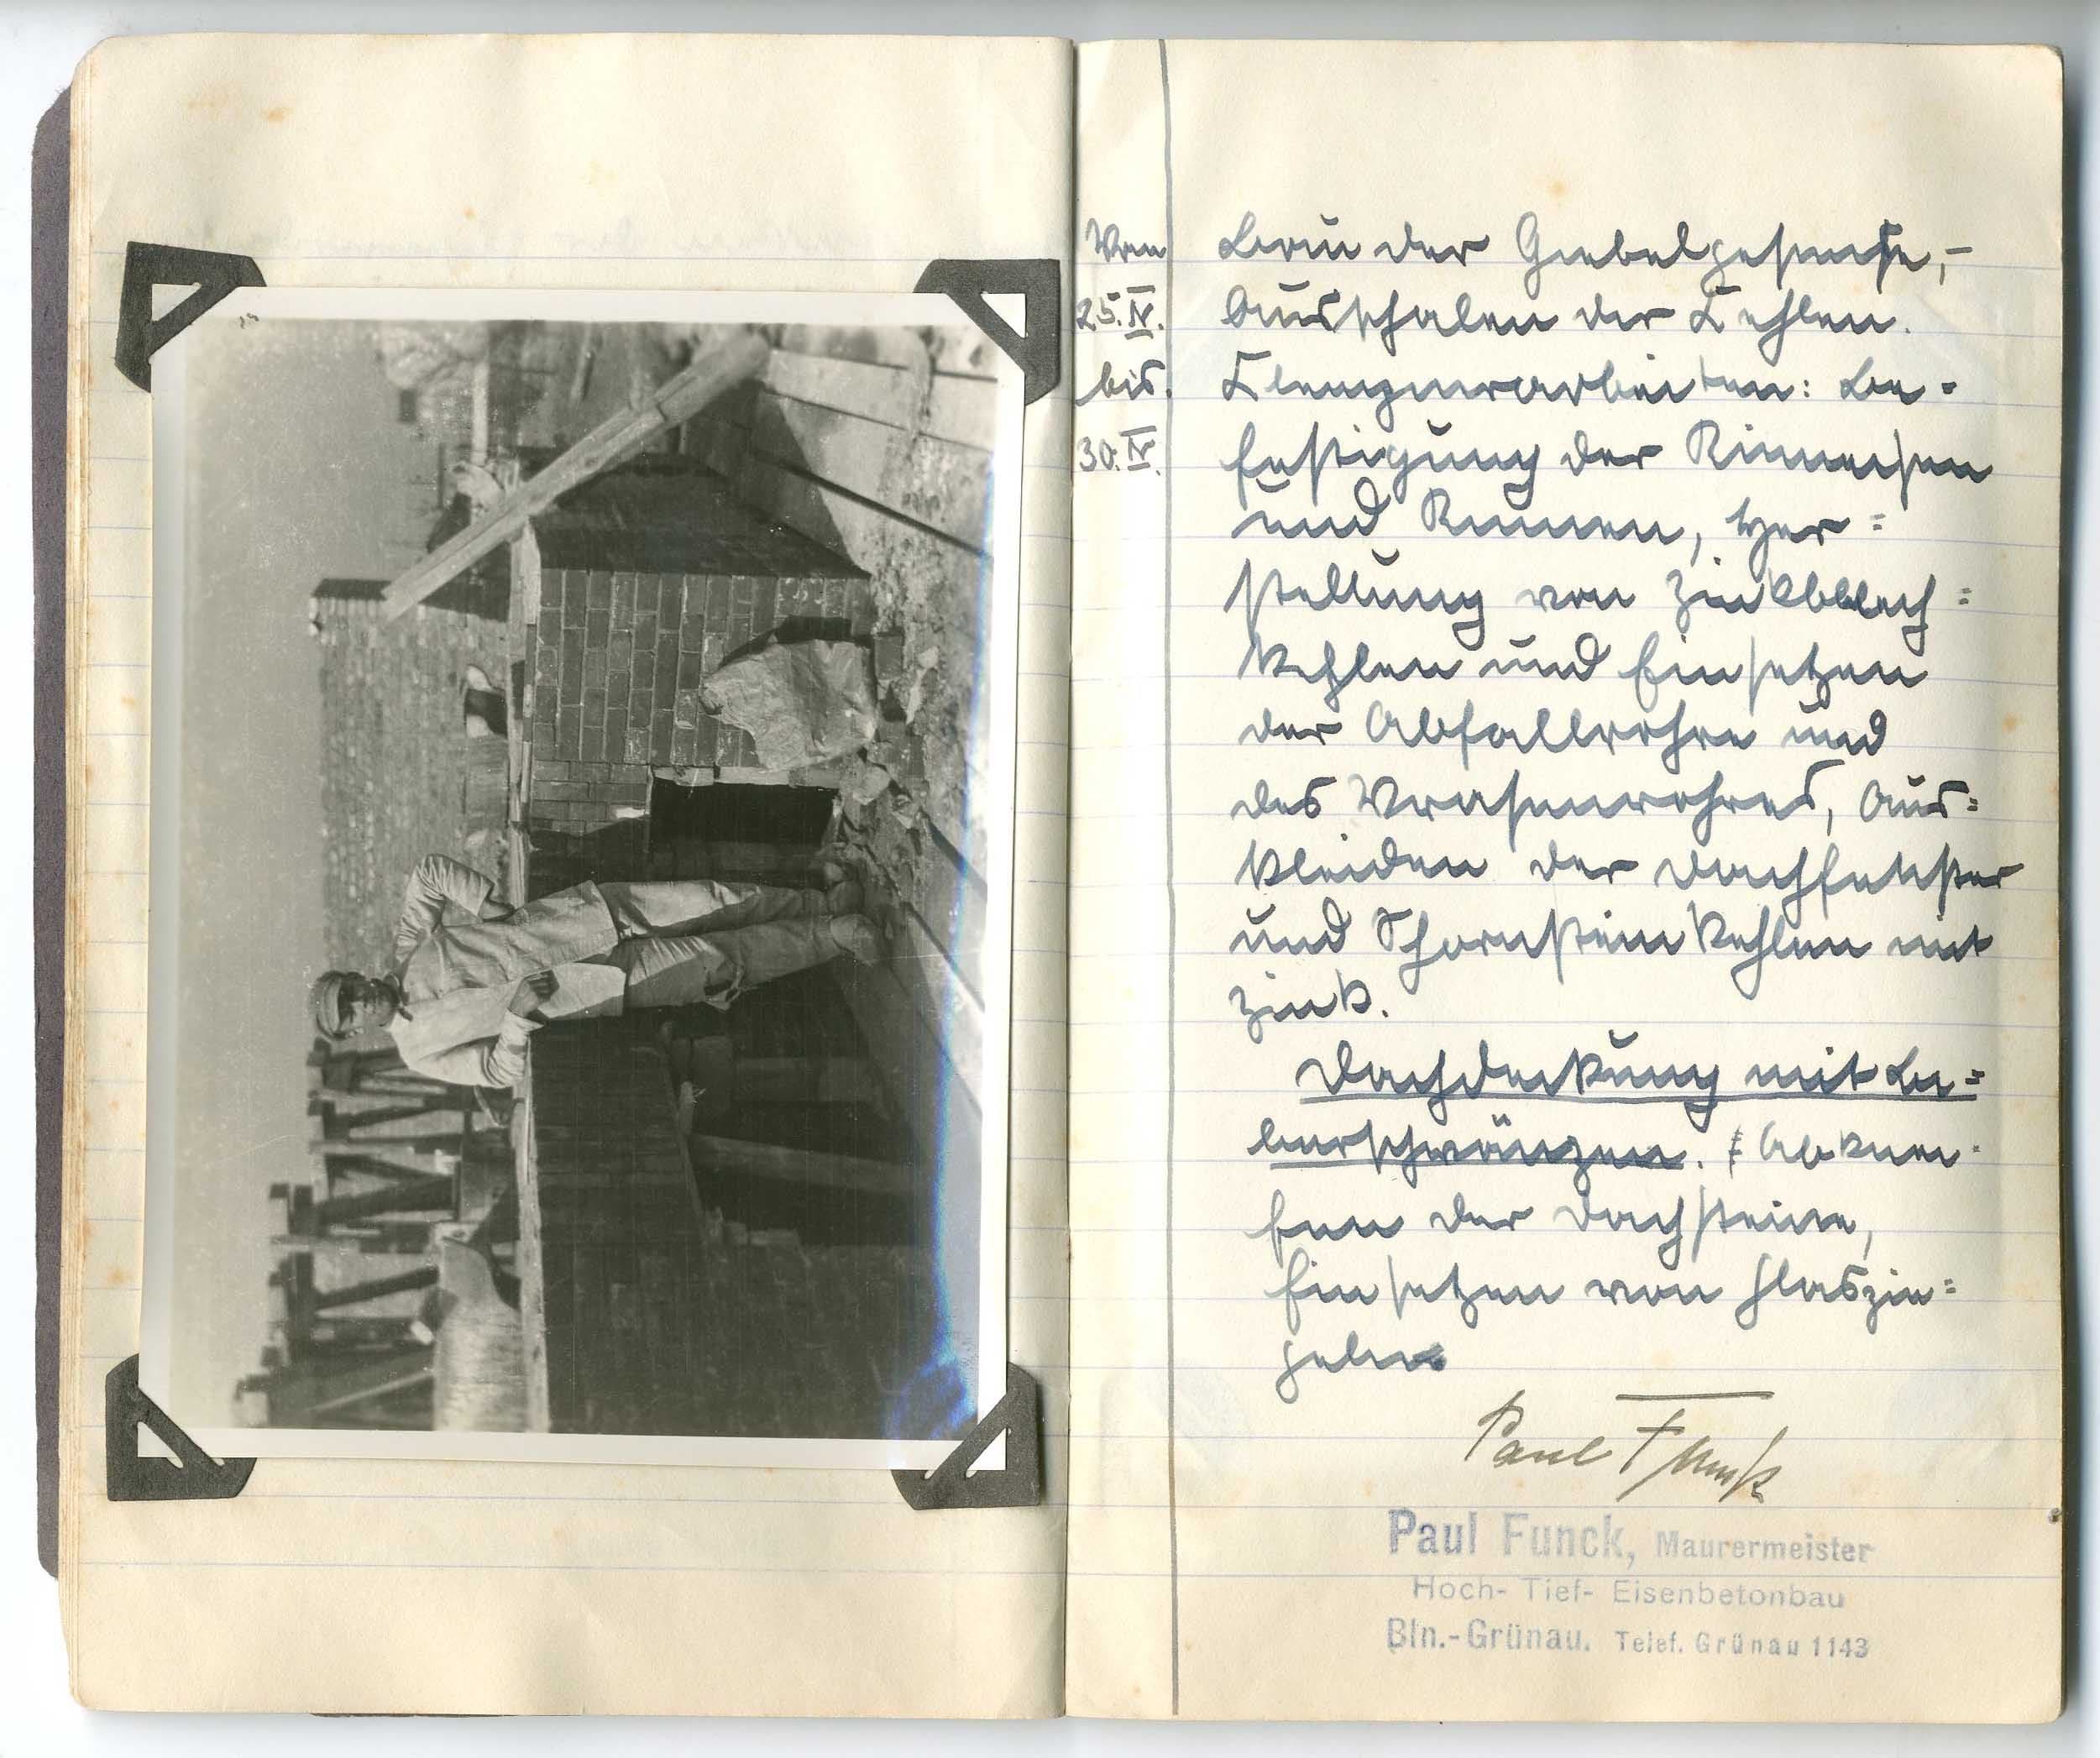 Von
25. IV.
bis.
30. IV.
Bau der Giebelgesimse,-
Ausschalen der Kehlen.
Klempnerarbeiten: Be-
festigung der Rinneisen
und Rinnen, Her=
stellung von Zinkblech=
kehlen und Einsetzen
der Abfallrohre und
des Wrasenrohres, Aus=
kleiden der Dachfenster
und Schornsteinkehlen mit
Zink.
Dachdeckung mit Bi=
berschwänzen. Abknei-
fen der Dachsteine,
Einsetzen von Glaszie=
geln
Paul Funck
Paul Funck, Maurermeister
Hoch- Tief- Eisenbetonbau
Bln.-Grünau. Telef. Grünau 1143